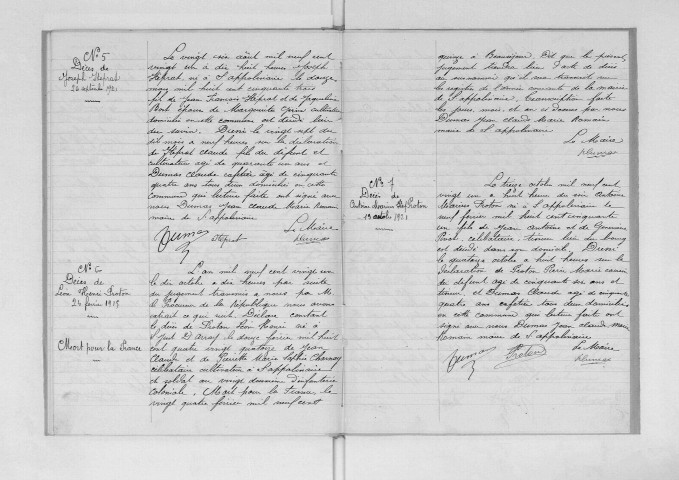 N° 5
Décès de
Joseph Heprat
26 août 1921
Le vingt six août mil neuf cent
vingt et un à dix huit heures Joseph
Heprat né à S'appolinaire le douze
mars mil huit cent cinquante trois
fils de Jean François Heprat et de Jacqueline
époux de Marguerite cultivateur
domicilié en cette commune est décédé
Dressé le vingt sept du
dit mois à neuf heures sur la déclaration
de Heprat Claude fils du défunt et
cultivateur âgé de quarante un ans et
Dumas Claude cafetier âgé de cinquante
quatre ans tous deux domiciliés en cette
commune qui lecture faite ont signé avec
nous Dumas Jean Claude Marie Romain
maire de S'appolinaire
Le Maire
Dumas Heprat Dumas
N° 6
Décès de
Léon Henri Proton
24 février 1915
Mort pour la France
L'an mil neuf cent vingt un
le dix octobre à dix heures par suite
de jugement transmis à nous par M.
le Procureur de la République nous avons
ce qui suit Déclare constant
le décès de Proton Léon Henri né à
le douze février mil huit
cent quatre vingt quatorze de Jean
Claude et de Pierrette Marie Sophie Charnay
célibataire cultivateur à S'appolinaire
et soldat au vingt deuxième d'infanterie
coloniale. Mort pour la France, le
vingt quatre février mil neuf cent
quinze à Beauséjour. Dit que le présent
jugement tiendra lieu d'acte de décès
au susnommé qu'il sera transcrit sur
les registres de l'année courante de la mairie
de S'appolinaire. Transcription faite
les jour, mois et an ci dessus par nous
Dumas Jean Claude Marie Romain
maire de S'appolinaire
Le Maire
Dumas
N° 7
Décès de
Proton
13 octobre 1921
Le treize octobre mil neuf cent
vingt un à huit heures du soir Antoine
Proton né à S'appolinaire le
neuf février mil huit cent cinquante
un fils de Jean Antoine et de
célibataire, du bourg
est décédé dans son domicile. Dressé
le quatorze octobre à huit heures sur la
déclaration de Proton Pierre Marie cousin
du défunt âgé de cinquante six ans et
et Dumas Claude âgé de cinquante
quatre ans cafetier tous deux domiciliés
en cette commune qui lecture faite ont
signé avec nous Dumas Jean Claude Marie
Romain maire de S'appolinaire
Le Maire
Dumas Proton Dumas